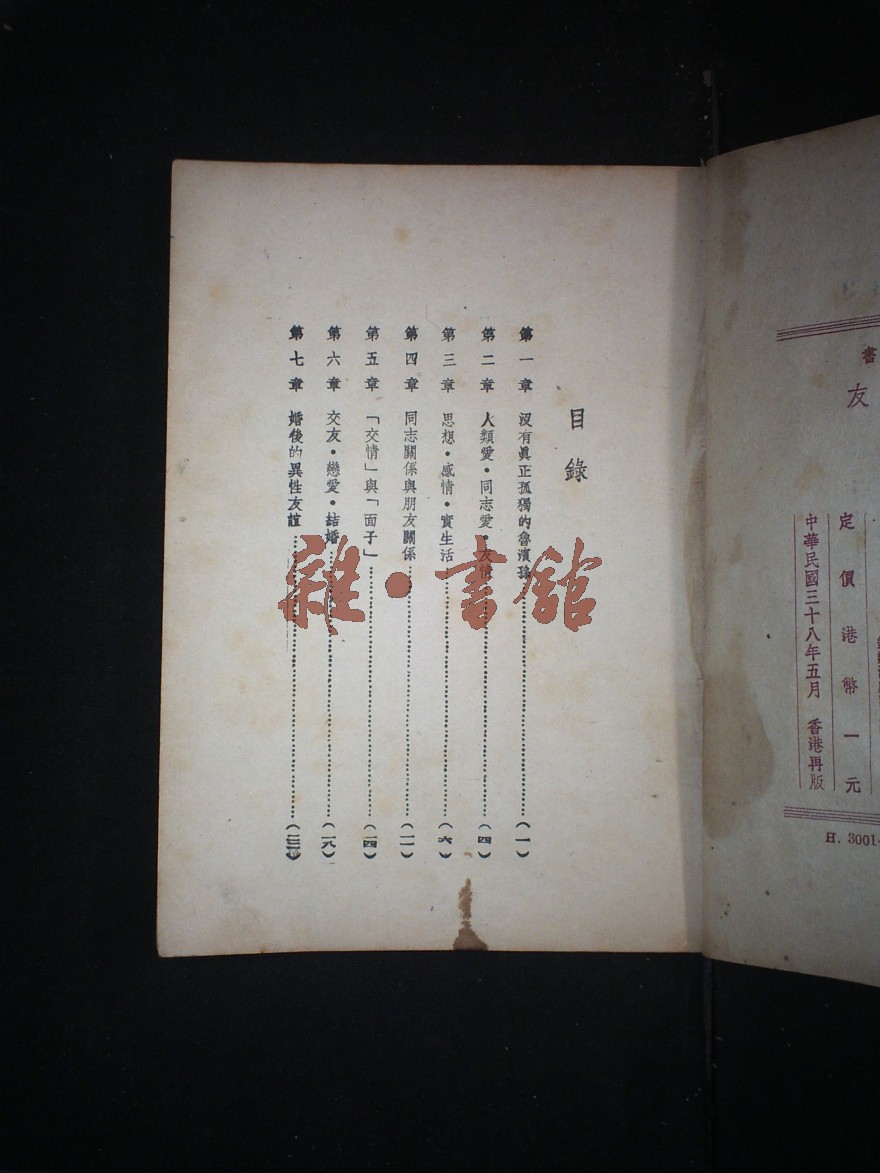 書
友
定價港幣一元
中華民國三十八年五月 香港再版
H. 3001-
目錄
第一章 沒有眞正孤獨的魯濱孫…………(一)
第二章 人類愛·同志愛·友情…………(四)
第三章 思想·感情·實生活…………(六)
第四章 同志關係與朋友關係…………(一一)
第五章 「交情」與「面子」…………(一四)
第六章 交友·戀愛·結婚…………(一八)
第七章 婚後的異性友誼…………
雜·書館